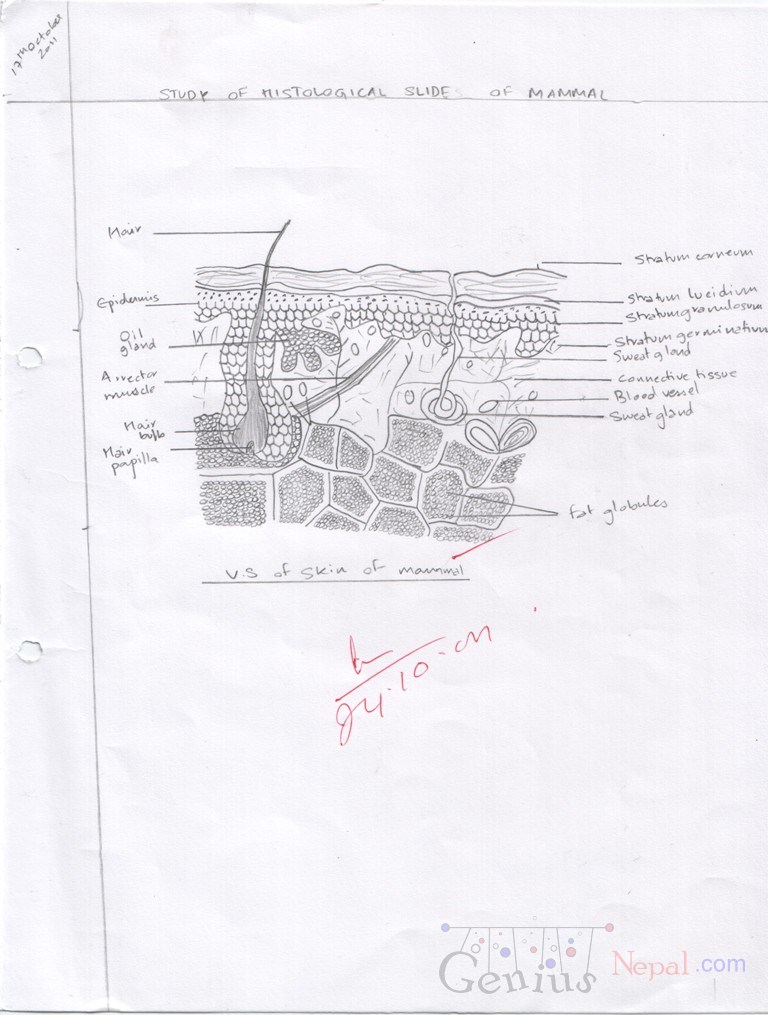 17th October
2011
STUDY OF HISTOLOGICAL SLIDE OF MAMMAL
Hair
Epidermis
Oil
gland
Arrector
muscle
Hair
bulb
Hair
papilla
Stratum corneum
Stratum lucidium
Stratum granulosum
Stratum germinativum
Sweat gland
Connective tissue
Blood vessel
Sweat gland
Fat globules
V.S of skin of mammal
Genius Nepal.com